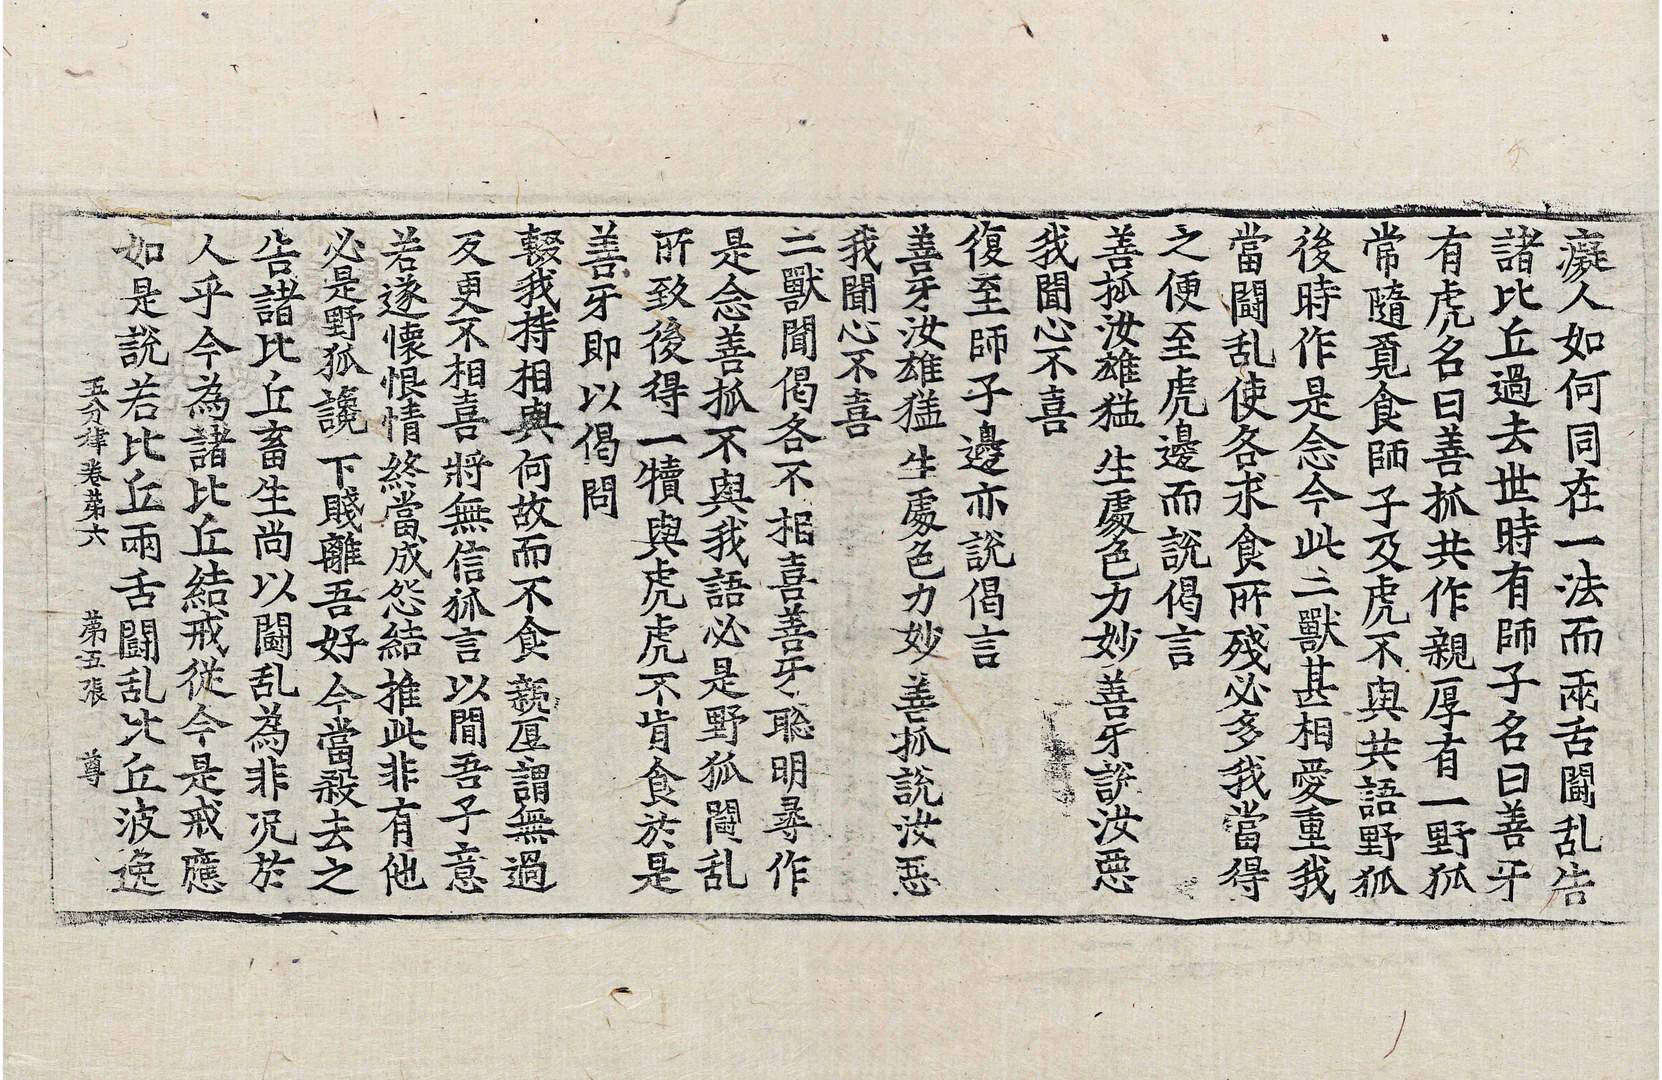 癡人如何同在一法而兩舌鬪乱告
諸比丘過去世時有師子名曰善牙
有虎名曰善抓共作親厚有一野狐
常隨覓食師子及虎不與共語野狐
後時作是念今此二獸甚相愛重我
當鬪乱使各求食所殘必多我當得
之便至虎邊而說偈言
善抓汝雄猛 生處色力妙 善牙說汝惡
我聞心不喜
復至師子邊亦說偈言
善牙汝雄猛 生處色力妙 善抓說汝惡
我聞心不喜
二獸聞偈各不相喜善牙聡明尋作
是念善抓不與我語必是野狐鬪乱
所致後得一犢與虎虎不肯食於是
善牙即以偈問
輟我持相與 何故而不食 親厚謂無過
反更不相喜 將無信狐言 以間吾子意
若遂懷恨情 終當成怨結 推此非有他
必是野狐讒 下賤離吾好 今當殺去之
告諸比丘畜生尚以鬪乱為非况於
人乎今為諸比丘結戒從今是戒應
如是說若比丘兩舌鬪乱比丘波逸
五分律卷苐六 苐五張 尊